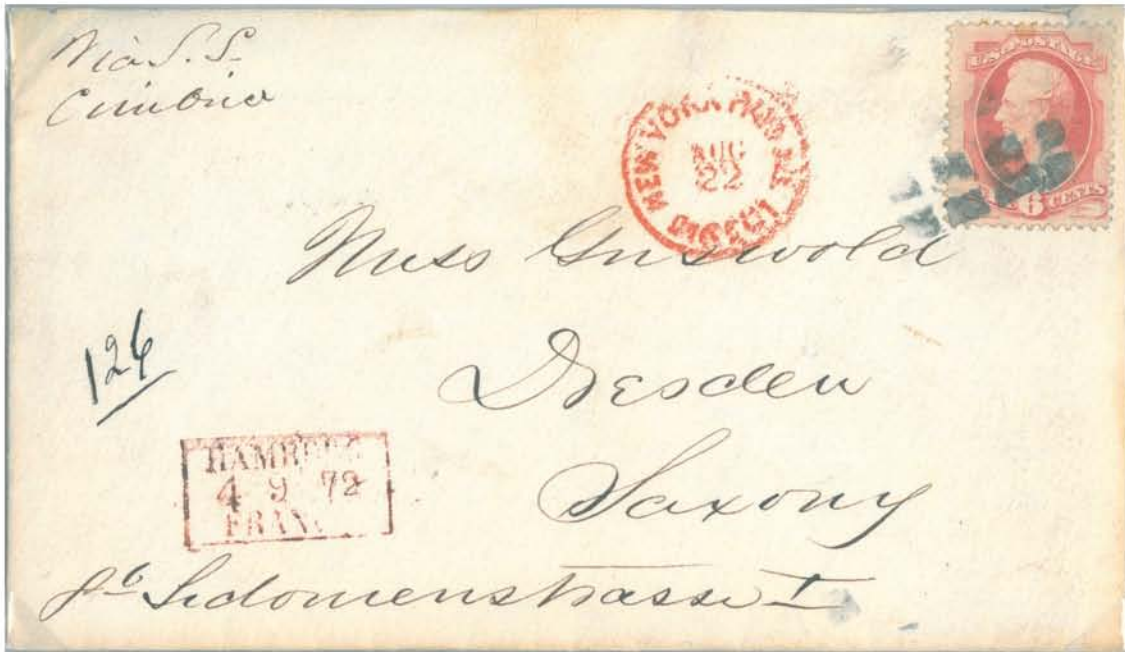 Via S. S.
Cimbria
U.S. POSTAGE
6 CENTS
NEW YORK PAID ALL
AUG
22
DIRECT
Miss Griswold
Dresden
Saxony
126
HAMBURG
4 9 72
FRANCO
Sidonienstrasse